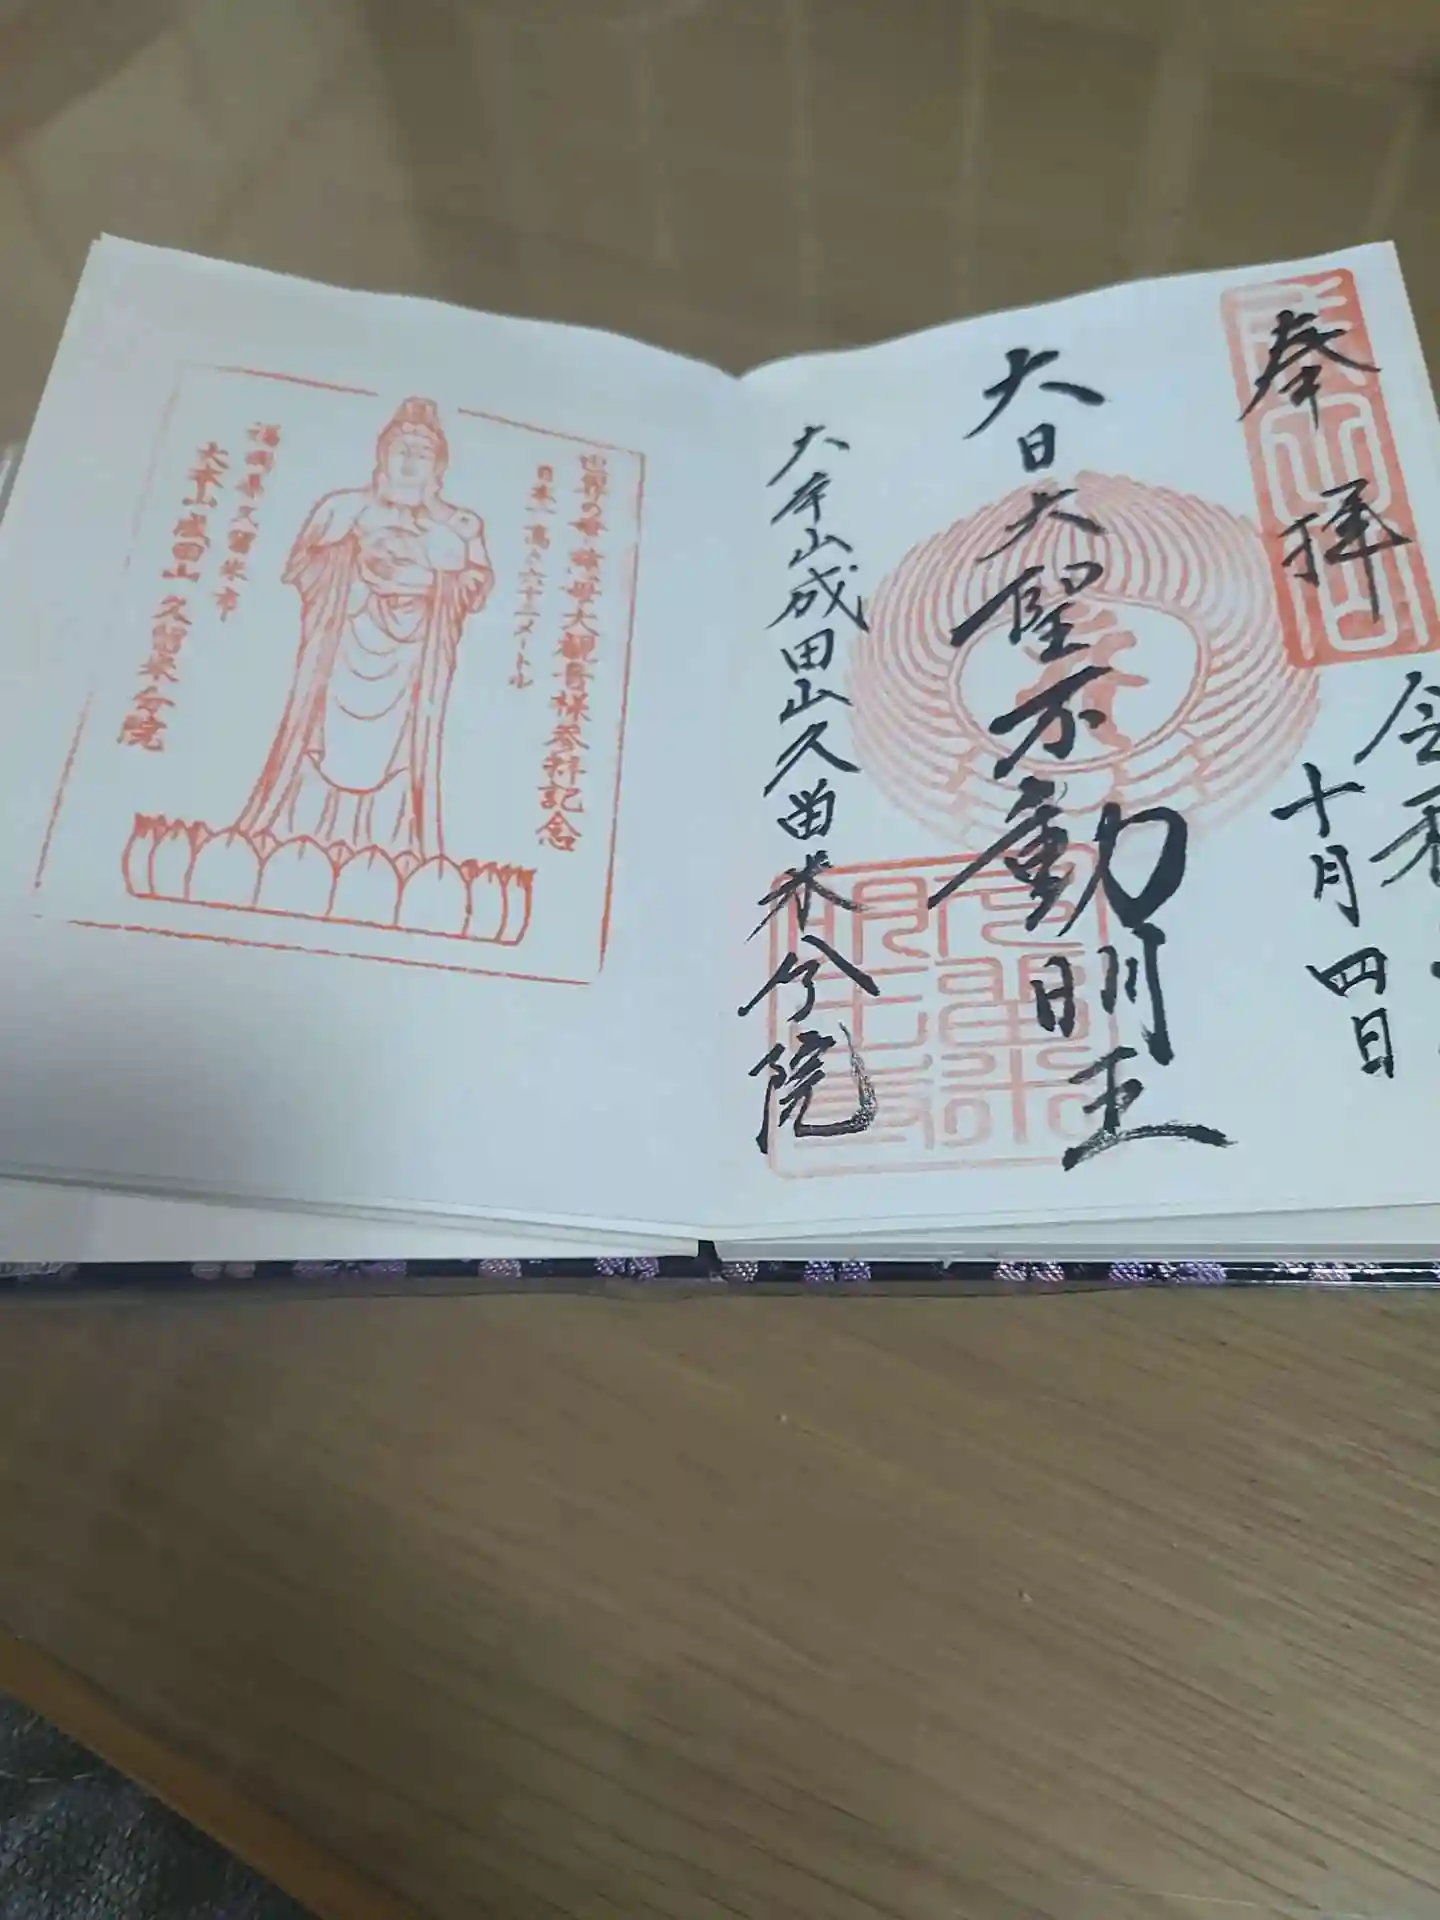 奉拝
令和
十月四日
大日大聖不動明王
大本山成田山久留米分院
世界の母 慈母大観音様参拝記念
日本一高さ六十二メートル
福岡県久留米市
大本山成田山久留米分院